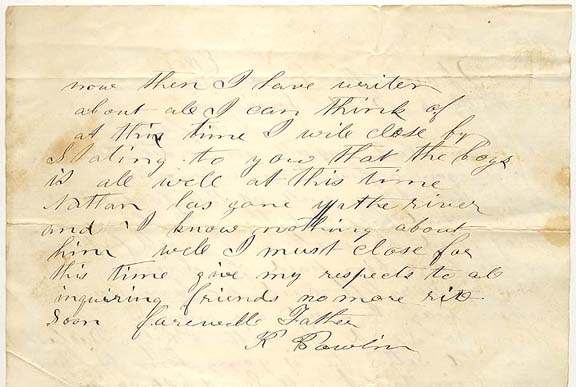 now then I have writen
about all I can think of
at this time I will close by
Stating to you that the boys
is all well at this time
Nathan has gone up the river
and I know nothing about
him well I must close for
this time give my respects to all
inquiring friends no more rite
soon farewell Father
K